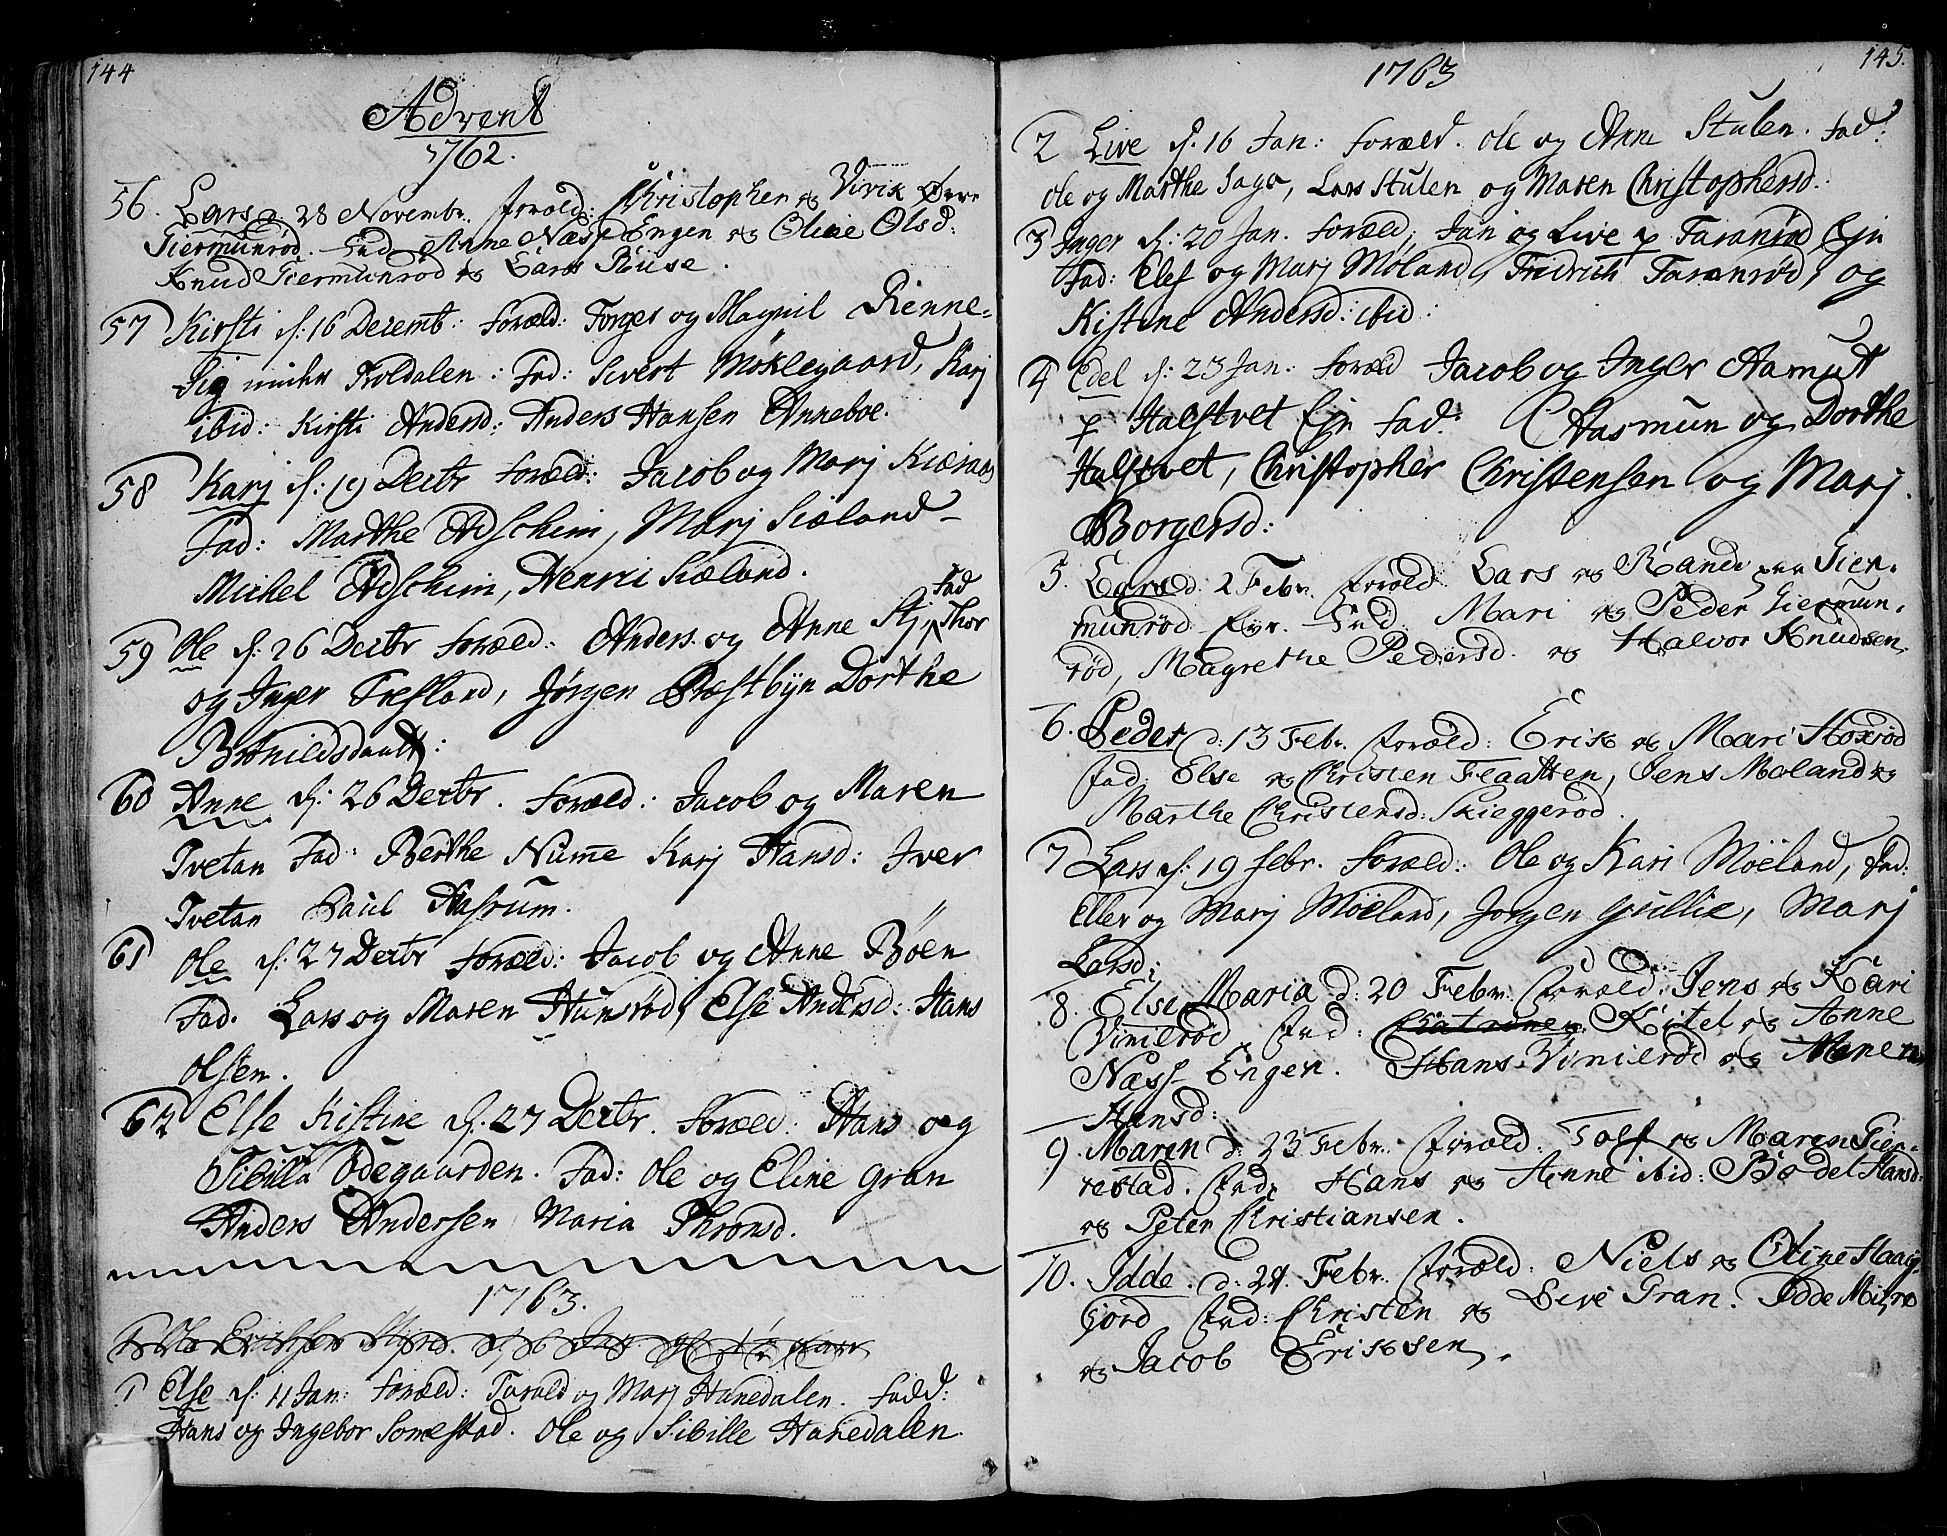 144
Advent
1762.
56. Lars d. 28 Novembr. Foræld: Christopher og Virik Øvre
Tiermunrød. Fad. Anne Næss Engen og Eline Olsd:
Knud Tiermunrød og Lars Ruse.
57 Kirsti d: 16 Decemb: Foræld: Torger og Magnil Rienne-
Sig under Foldalen: Fad: Sivert Møklegaard, Karj
ibid: Kirsti Andersd: Anders Hansen Anneboe.
58 Karj d: 19 Decbr Foræld: Jacob og Marj Kieraas
Fad: Marthe Adscheim, Marj Siæland
Michel Adscheim, Henric Siæland.
59 Ole d: 26 Decbr Foræld: Anders og Anne Stj, Fad Thor
og Inger Fresland, Jørgen Præstbyn Dorthe
Botnildsdaatt:
60 Anne d: 26 Decbr. Foræld: Jacob og Maren
Tvetan Fad: Berthe Nume Karj Hansd: Iver
Tvetan Paul Aasrum.
61 Ole d: 27 Decbr Foræld: Jacob og Anne Bøen
Fad. Lars og Maren Hunsrød, Else Andersd: Hans
Olsen.
62 Else Kistine d: 27 Decbr. Foræld: Hans og
Sibilla Ødegaarden. Fad: Ole og Eline Gran
Anders Andersen Maria Thronsd.
1763.
1 Else d: 11 Jan: Foræld: Tarald og Marj Hanedalen. Fadd:
Hans og Ingebor Somestad. Ole og Sibille Hanedalen.
145.
1763
2 Live d. 16 Jan: Foræld. Ole og Anne Stulen. Fad:
Ole og Marthe Saga, Lars Stulen og Maren Christophersd.
3 Inger d: 20 Jan. Foræld. Jan og Live p Taranrød Ejn
Fad: Elef og Marj Moland, Fridrich Taranrød, og
Kistine Andersd: ibid:
4 Edel d: 23 Jan. Foræld Jacob og Inger Aamutt
p Halstvet Ejn Fad: Aasmun og Dorthe
Halstvet, Christopher Christensen og Marj
Borgersd:
5. Lars d. 2 Febr. Foræld Lars og Rande paa Tier-
munrød Eyn. Fad. Mari og Peder Tiermun-
rød, Magrethe Pedersd. og Halvor Knudsen
6. Peder d: 13 Febr. Foræld: Erik og Mari Hoxrød
Fad. Else og Christen Flaatten, Jens Moland og
Marthe Christensd: Skieggerød.
7 Lars d: 19 febr. Foræld: Ole og Kari Möeland, Fad:
Eller og Marj Möeland, Jorgen Gullie, Marj
Larsd:
8. Else Maria d: 20 Febr. Foræld. Jens og Kari
Vinierød, Fad: Kitel og Anne
Næss-Engen. Hans Vinierød og Maren
Hansd:
9. Maren d: 23 Febr. Foræld. Tolf og Maren Tier-
restad. Fad: Hans og Anne ibid: Bodel Hansd:
og Peter Christiansen.
10. Idde. d: 24. Febr. Foræld: Niels og Eline Haag-
Fad: Christen og Live Gran.
og Jacob Eriksen.